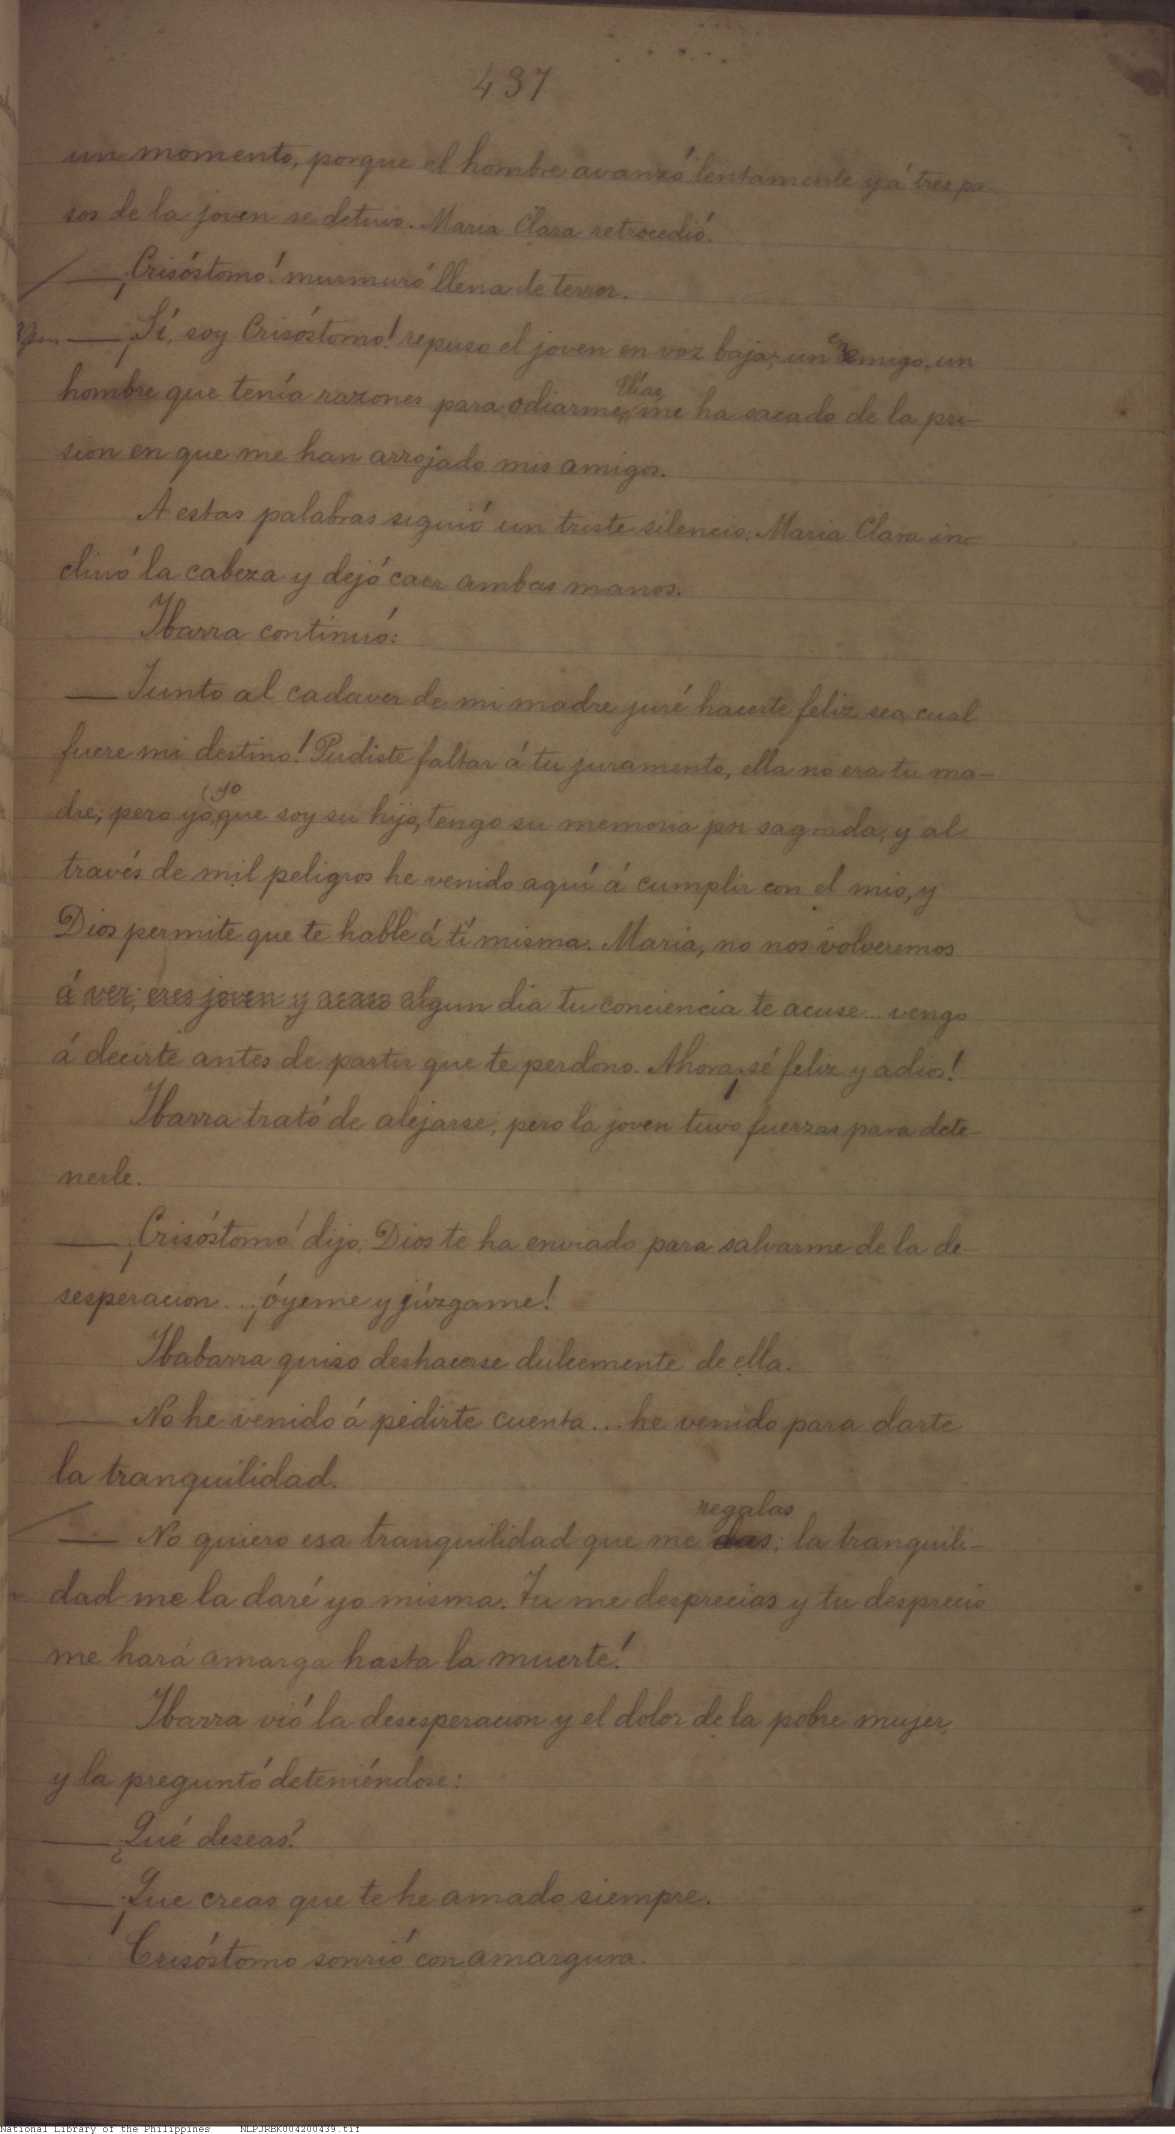 437
un momento, porque el hombre avanzó lentamente y á tres pa-
sos de la joven se detuvo. Maria Clara retrocedió.
— ¡Crisóstomo! murmuró llena de terror.
— ¡Sí, soy Crisóstomo! repuso el joven en voz baja; un enemigo, un
hombre que tenía razones para odiarme, Elías, me ha sacado de la pri-
sion en que me han arrojado mis amigos.
A estas palabras siguió un triste silencio; Maria Clara in-
clinó la cabeza y dejó caer ambas manos.
Ibarra continuó:
— Junto al cadaver de mi madre juré hacerte feliz sea cual
fuere mi destino! Pudiste faltar á tu juramento, ella no era tu ma-
dre; pero yo, yo que soy su hijo, tengo su memoria por sagrada, y al
través de mil peligros he venido aquí á cumplir con el mio, y
Dios permite que te hable á tí misma. Maria, no nos volveremos
á ver; eres joven y acaso algun dia tu conciencia te acuse... vengo
á decirte antes de partir que te perdono. Ahora, ¡sé feliz y adios!
Ibarra trató de alejarse, pero la joven tuvo fuerzas para dete-
nerle.
— ¡Crisóstomo! dijo, Dios te ha enviado para salvarme de la de-
sesperacion... ¡óyeme y júzgame!
Ibabarra quiso deshacerse dulcemente de ella.
— No he venido á pedirte cuenta... he venido para darte
la tranquilidad.
— No quiero esa tranquilidad que me das regalas; la tranquili-
dad me la daré yo misma. Tu me desprecias y tu desprecio
me hará amarga hasta la muerte!
Ibarra vió la desesperacion y el dolor de la pobre mujer,
y la preguntó deteniéndose:
— ¿Qué deseas?
— ¡Que creas que te he amado siempre.
Crisóstomo sonrió con amargura.
National Library of the Philippines NLPJRBK004200439.tif